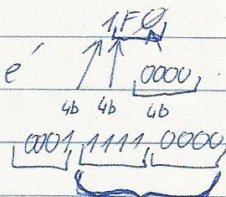 1FØ
é 0000
4b 4b 4b
0001 1111 0000